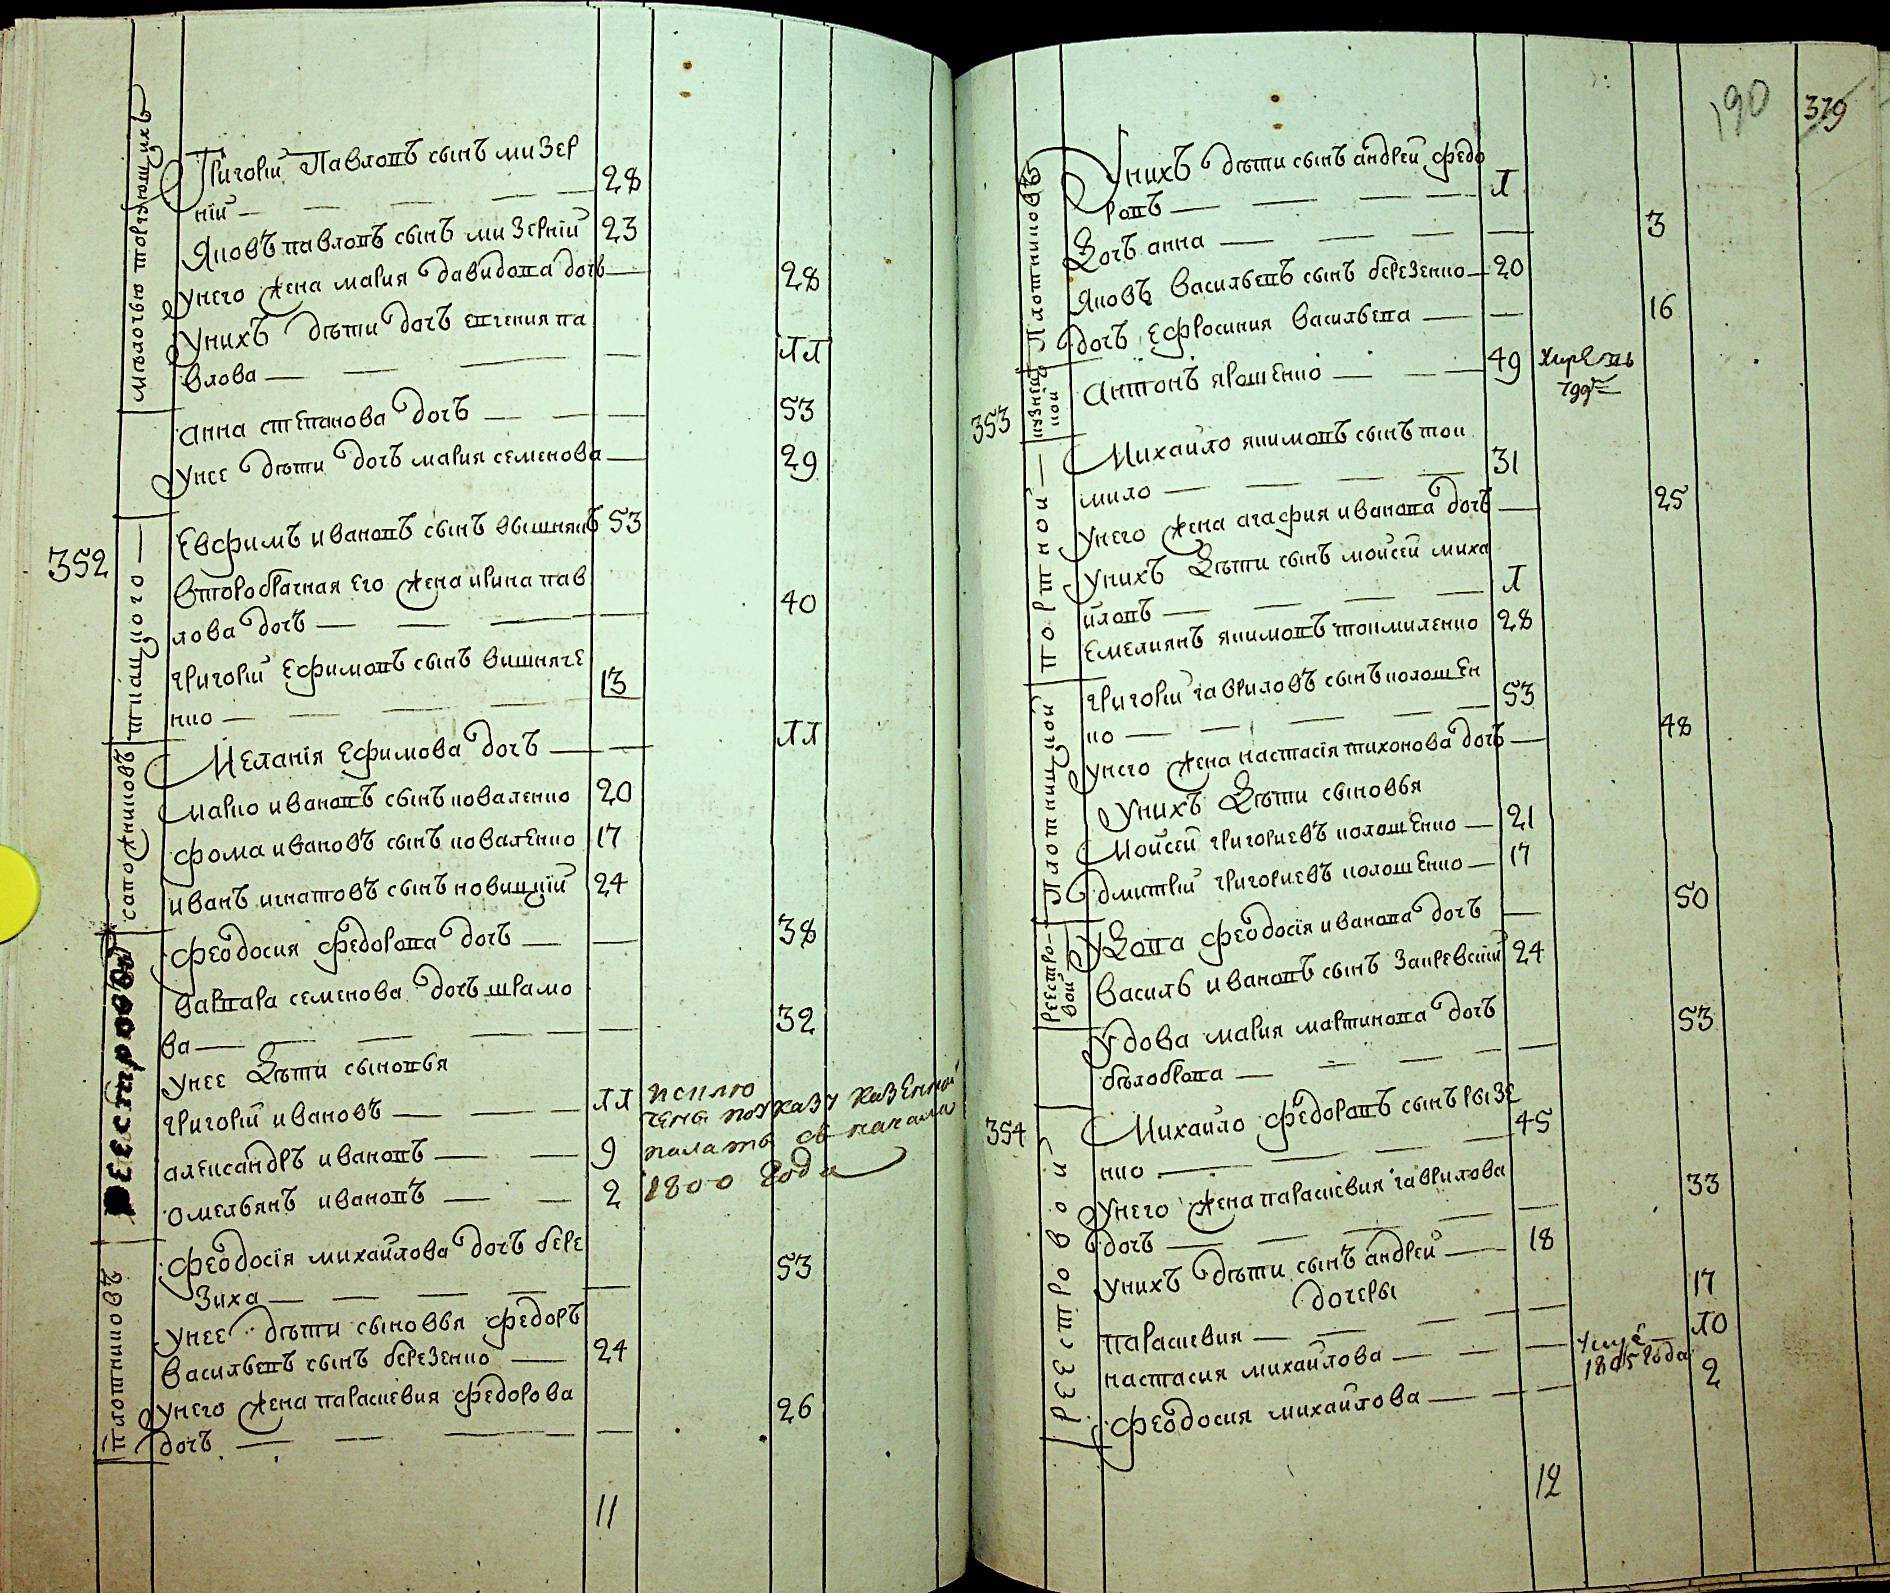 мѣлочью торгующихъ
Григорій Павловъ сынъ мизер
ній — 28
Яковъ павловъ сынъ мизерній 23
Унего жена мария давидова дочь — 28
Унихъ дѣти дочь евгения па
влова — 11
анна степанова дочь — 53
Унее дѣти дочь мария семенова — 29
352
ткацкого
Евфимъ ивановъ сынъ вышнякъ 53
второбрачная его жена ирина пав
лова дочь — 40
григорій Ефимовъ сынъ вишняче
нко — 13
сапожниковъ
Меланія Ефимова дочь — 11
марко ивановъ сынъ коваленко 20
фома ивановъ сынъ коваленко 17
иванъ игнатовъ сынъ новицкій 24
реестровой
феодосия федорова дочь — 38
варвара семенова дочь шрамо
ва — 32
Унее Дѣти сыновья
григорій ивановъ — 11 исклю
чены по указу казенной
александръ ивановъ — 9 палаты съ начала
омельянъ ивановъ — 2 1800 года
плотниковъ
феодосія михайлова дочь бере
зиха — 53
Унее дѣти сыновья федоръ
Васильевъ сынъ березенко — 24
Унего жена параскевия федорова
дочь — 26
11
190 379
Плотниковъ
Унихъ дѣти сынъ андрей федо
ровъ — 1
Дочь анна — 3
Яковъ Васильевъ сынъ березенко — 20
дочь Ефросиния Васильева — 16
353
кузнец
кой
Антонъ ярошенко — 49
портной
Михайло якимовъ сынъ ток
мило — 31
Унего жена агафия иванова дочь — 25
Унихъ Дѣти сынъ мойсей миха
йловъ — 1
Емелиянъ якимовъ токмиленко 28
Плотницкой
григорій гавриловъ сынъ колошен
ко — 53
Унего жена настасія тихонова дочь — 48
Унихъ Дѣти сыновья
Мойсей григориевъ колошенко — 21
дмитрій григориевъ колошенко — 17
реестро-
вой
УДова феодосія иванова дочь — 50
Василь ивановъ сынъ Закревскій 24
Удова мария мартинова дочь
бѣлоброва — 53
354
реестровой
Михайло федоровъ сынъ рызе
нко — 45
Унего жена параскевия гаврилова
дочь — 33
Унихъ дѣти сынъ андрей — 18
дочеры
параскевия — 17
настасия михайлова — 10
1805 года
феодосия михайлова — 2
12